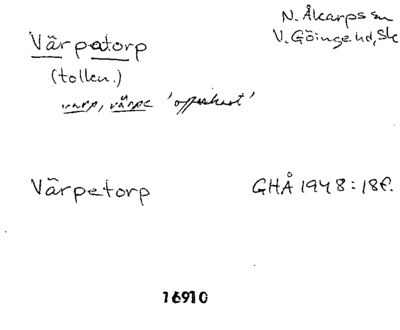 N. Åkarps sn
V. Göinge hd, Sk
Värpatorp
(tolkn.)
varp, värpe 'offerkast'
Värpetorp GHÅ 1948:18f.
16910